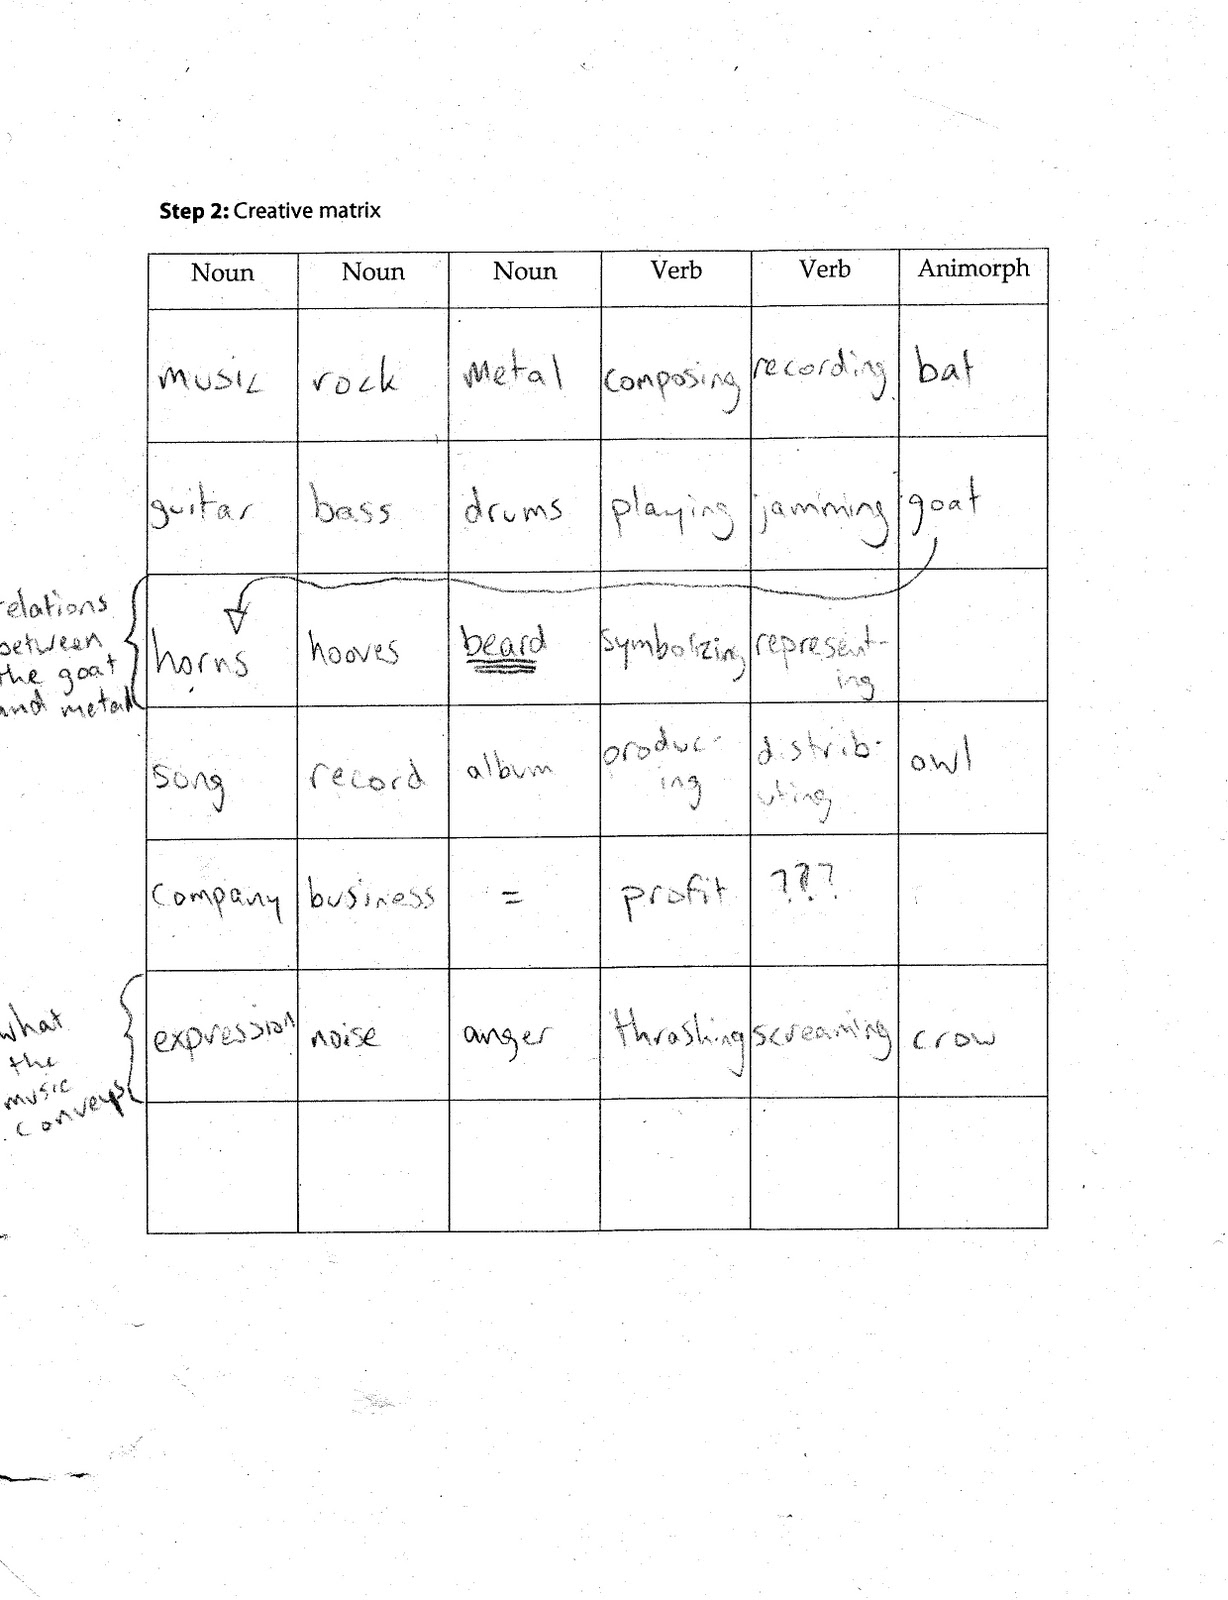 Step 2: Creative matrix
Noun Noun Noun Verb Verb Animorph
music rock Metal composing recording bat
guitar bass drums playing jamming goat
relations
between
the goat
and metal
horns hooves beard symbolizing represent-
ing
song record album produc-
ing
distrib-
uting
owl
company business = profit ???
what
the
music
conveys
expression noise anger thrashing screaming crow